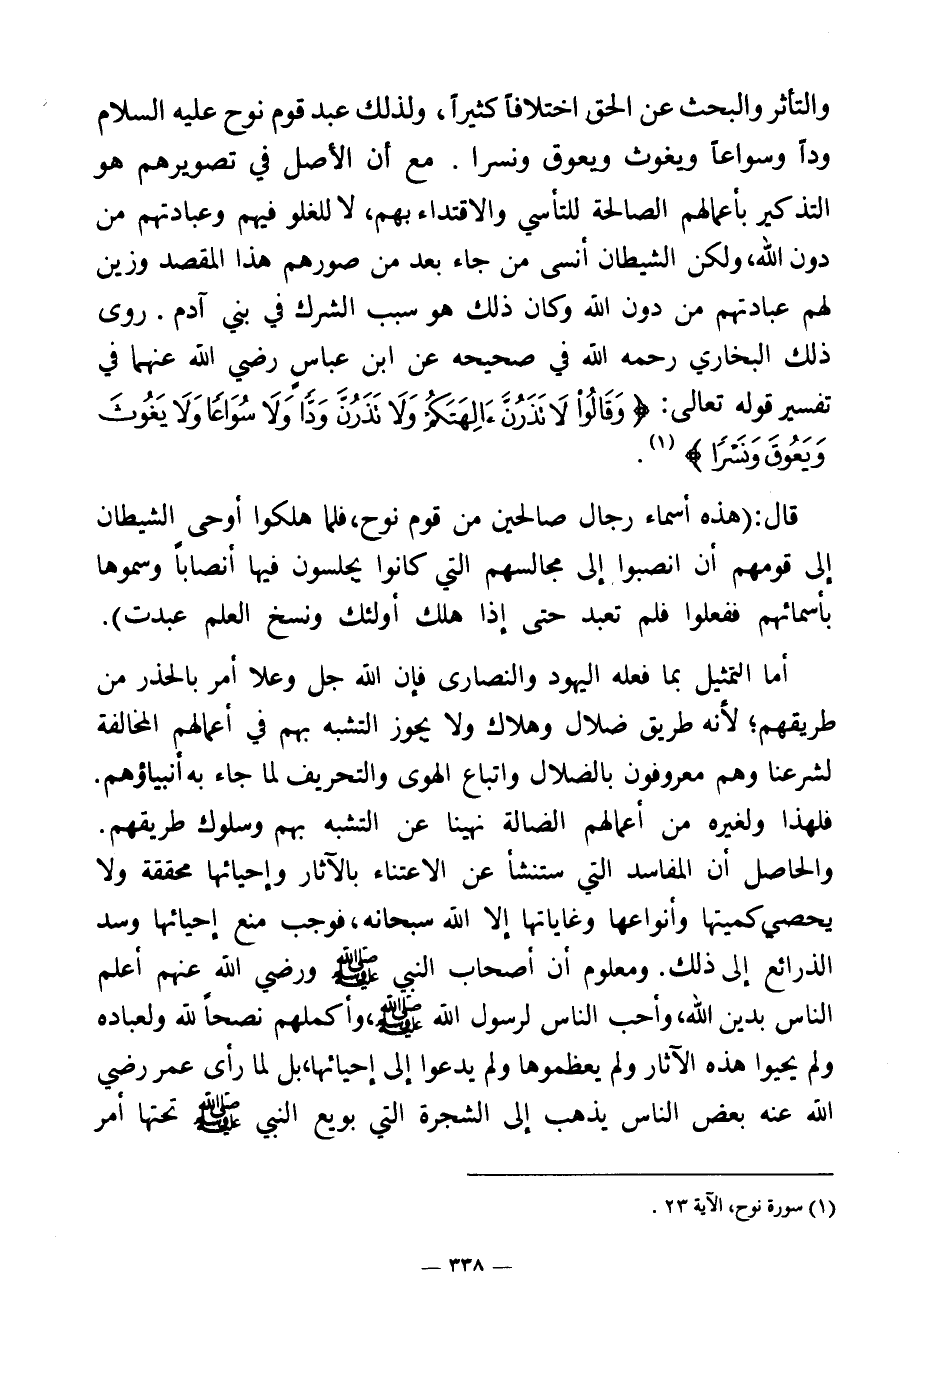 والتأثر والبحث عن الحق اختلافاً كثيراً، ولذلك عبد قوم نوح عليه السلام
وداً وسواعاً ويغوث ويعوق ونسرا . مع أن الأصل في تصويرهم هو
التذكير بأعمالهم الصالحة للتأسي والاقتداء بهم، لا للغلو فيهم وعبادتهم من
دون الله، ولكن الشيطان أنسى من جاء بعد من صورهم هذا المقصد وزين
لهم عبادتهم من دون الله وكان ذلك هو سبب الشرك في بني آدم . روى
ذلك البخاري رحمه الله في صحيحه عن ابن عباسٍ رضي الله عنهما في
تفسير قوله تعالى: ﴿ وَقَالُوا۟ لَا تَذَرُنَّ ءَالِهَتَكُمْ وَلَا تَذَرُنَّ وَدًّا وَلَا سُوَاعًا وَلَا يَغُوثَ
وَيَعُوقَ وَنَسْرًا ﴾ (١) .
قال: (هذه أسماء رجال صالحين من قوم نوح، فلما هلكوا أوحى الشيطان
إلى قومهم أن انصبوا إلى مجالسهم التي كانوا يجلسون فيها أنصاباً وسموها
بأسمائهم ففعلوا فلم تعبد حتى إذا هلك أولئك ونسخ العلم عبدت).
أما التمثيل بما فعله اليهود والنصارى فإن الله جل وعلا أمر بالحذر من
طريقهم؛ لأنه طريق ضلال وهلاك ولا يجوز التشبه بهم في أعمالهم المخالفة
لشرعنا وهم معروفون بالضلال واتباع الهوى والتحريف لما جاء به أنبياؤهم.
فلهذا ولغيره من أعمالهم الضالة نهينا عن التشبه بهم وسلوك طريقهم.
والحاصل أن المفاسد التي ستنشأ عن الاعتناء بالآثار وإحيائها محققة ولا
يحصي كميتها وأنواعها وغاياتها إلا الله سبحانه، فوجب منع إحيائها وسد
الذرائع إلى ذلك. ومعلوم أن أصحاب النبي ﷺ ورضي الله عنهم أعلم
الناس بدين الله، وأحب الناس لرسول الله ﷺ، وأكملهم نصحاً لله ولعباده
ولم يحيوا هذه الآثار ولم يعظموها ولم يدعوا إلى إحيائها، بل لما رأى عمر رضي
الله عنه بعض الناس يذهب إلى الشجرة التي بويع النبي ﷺ تحتها أمر
(١) سورة نوح، الآية ٢٣ .
— ٣٣٨ —